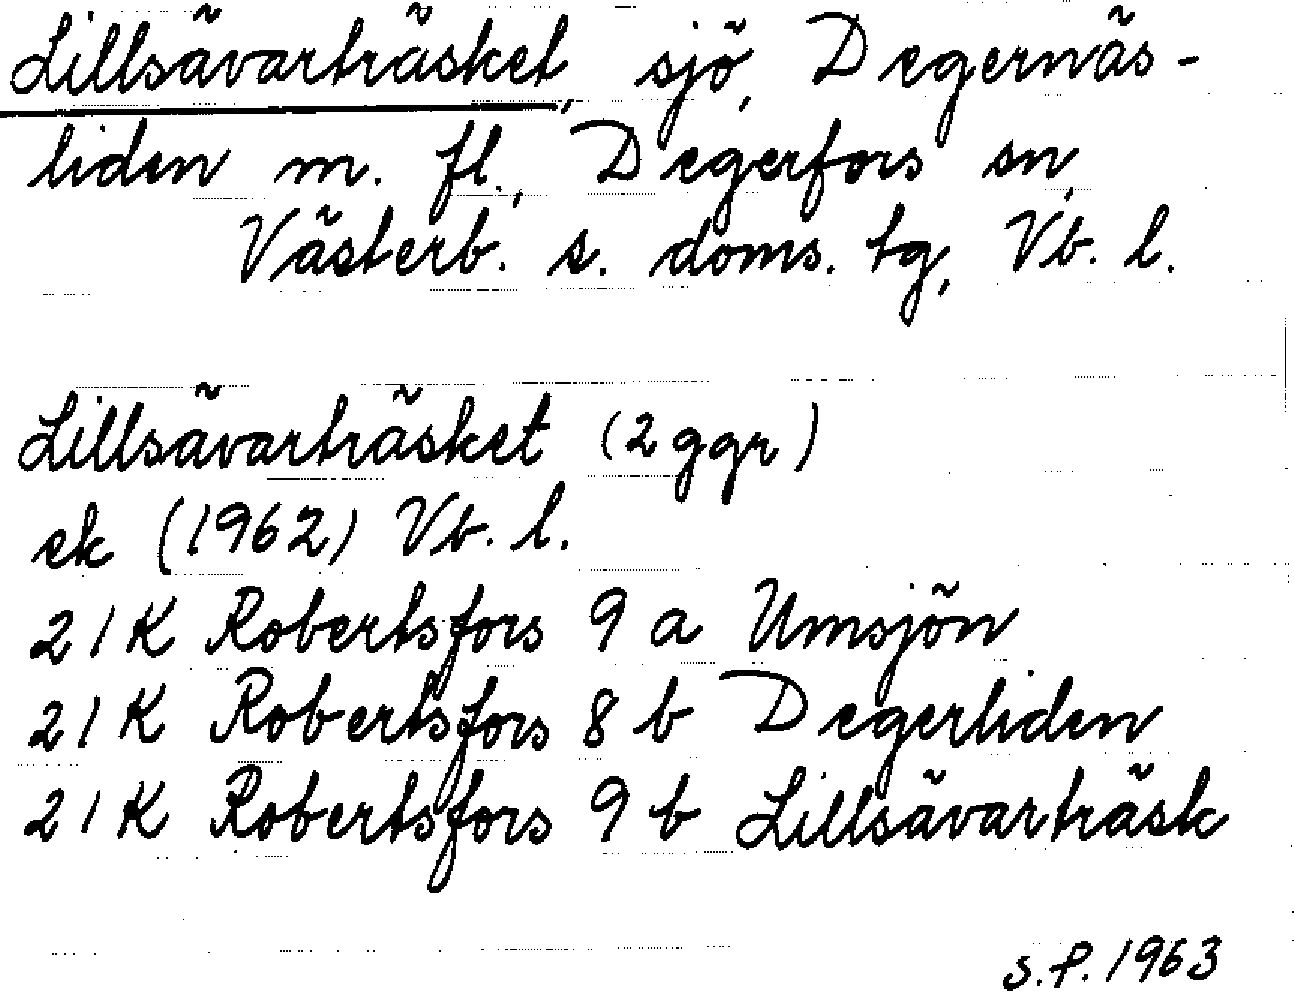 Lillsävarträsket, sjö, Degernäs-
liden m. fl., Degerfors sn,
Västerb. s. doms. tg, Vb. l.
Lillsävarträsket (2 ggr)
ek (1962) Vb. l.
21K Robertsfors 9 a Umsjön
21K Robertsfors 8 b Degerliden
21K Robertsfors 9 b Lillsävarträsk
S.F. 1963